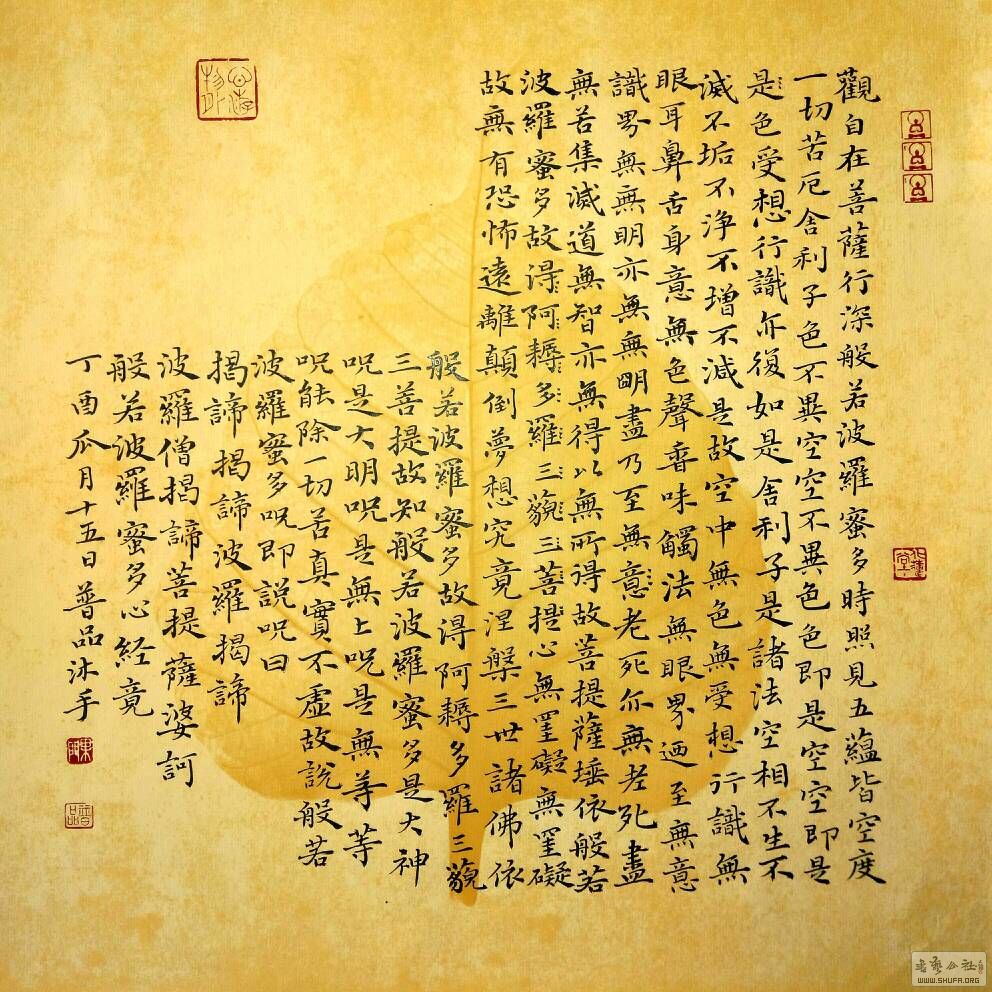 觀自在菩薩行深般若波羅蜜多時照見五蘊皆空度
一切苦厄舍利子色不異空空不異色色即是空空即是
是色受想行識亦復如是舍利子是諸法空相不生不
滅不垢不淨不增不減是故空中無色無受想行識無
眼耳鼻舌身意無色聲香味觸法無眼界迺至無意
識界無無明亦無無明盡乃至無意老死亦無老死盡
無苦集滅道無智亦無得以無所得故菩提薩埵依般若
波羅蜜多故得阿耨多羅三藐三菩提心無罣礙無罣礙
故無有恐怖遠離顛倒夢想究竟涅槃三世諸佛依
般若波羅蜜多故得阿耨多羅三藐
三菩提故知般若波羅蜜多是大神
呪是大明呪是無上呪是無等等
呪能除一切苦真實不虛故說般若
波羅蜜多呪即說呪曰
揭諦揭諦波羅揭諦
波羅僧揭諦菩提薩婆訶
般若波羅蜜多心经竟
丁酉瓜月十五日普品沐手
普品
WWW.SHUFA.ORG